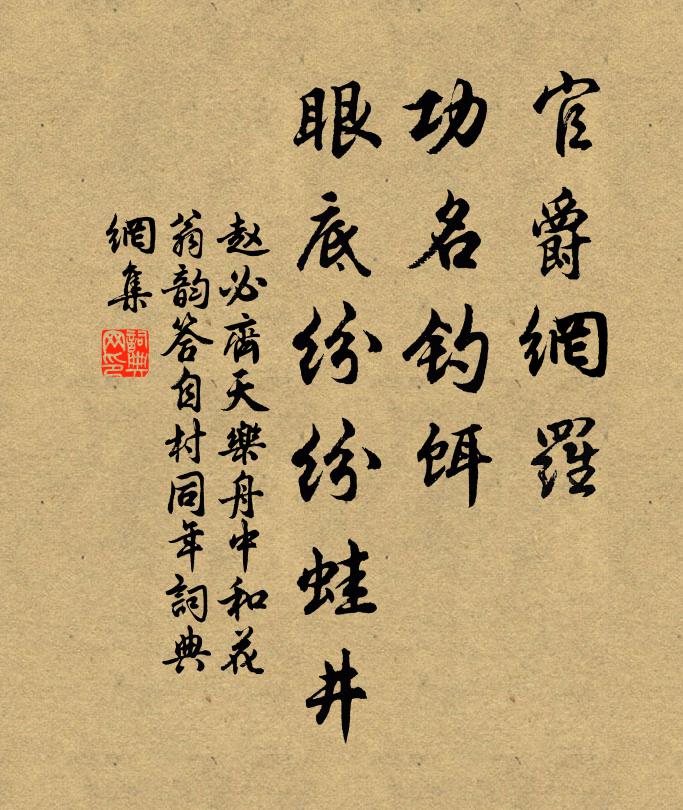 官爵網羅
功名钓餌
眼底纷纷蛙井
赵必齊天樂舟中和花
翁韵答自村同年詞典
網集
詞典
网印